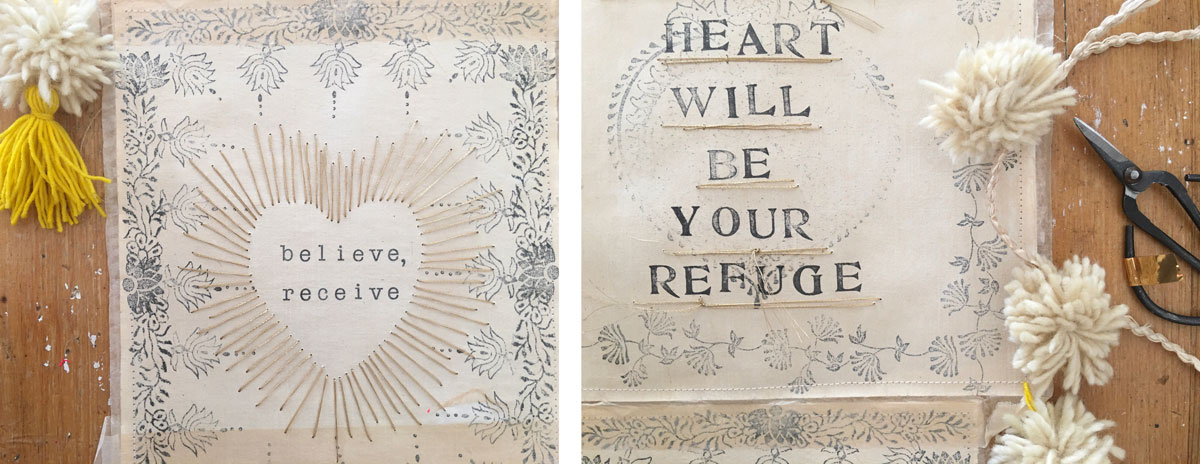 believe,
receive
HEART
WILL
BE
YOUR
REFUGE